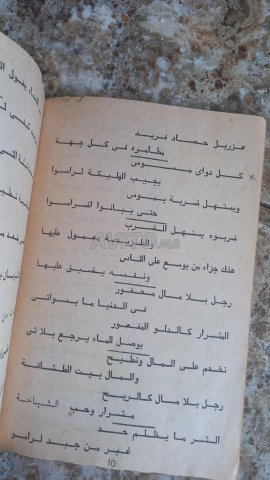 عزريل حصاد فريد
مطامره فى كل جهة
كل دواى مسوس
يجيب الهليكة لراسوا
ويستهل ضربة بموس
حتى يبانوا اضراسوا
ضربوه يستهل الضرب
والطريحة معمول عليها
هذك جزاء من يوسع على الناس
ونفسه يضيق عليها
رجل بلا مال محقور
فى الدنيا ما يسواشى
المشرار كالدلو المقعور
يوصل للماء يرجع بلا شى
نخدم على المال ونطيح
والمال بيت الطشانة
رجل بلا مال كالريح
مشرار وحب الشياخة
الشر ما يظلم حد
غير من جبد لراسو
10
AVITO.MA